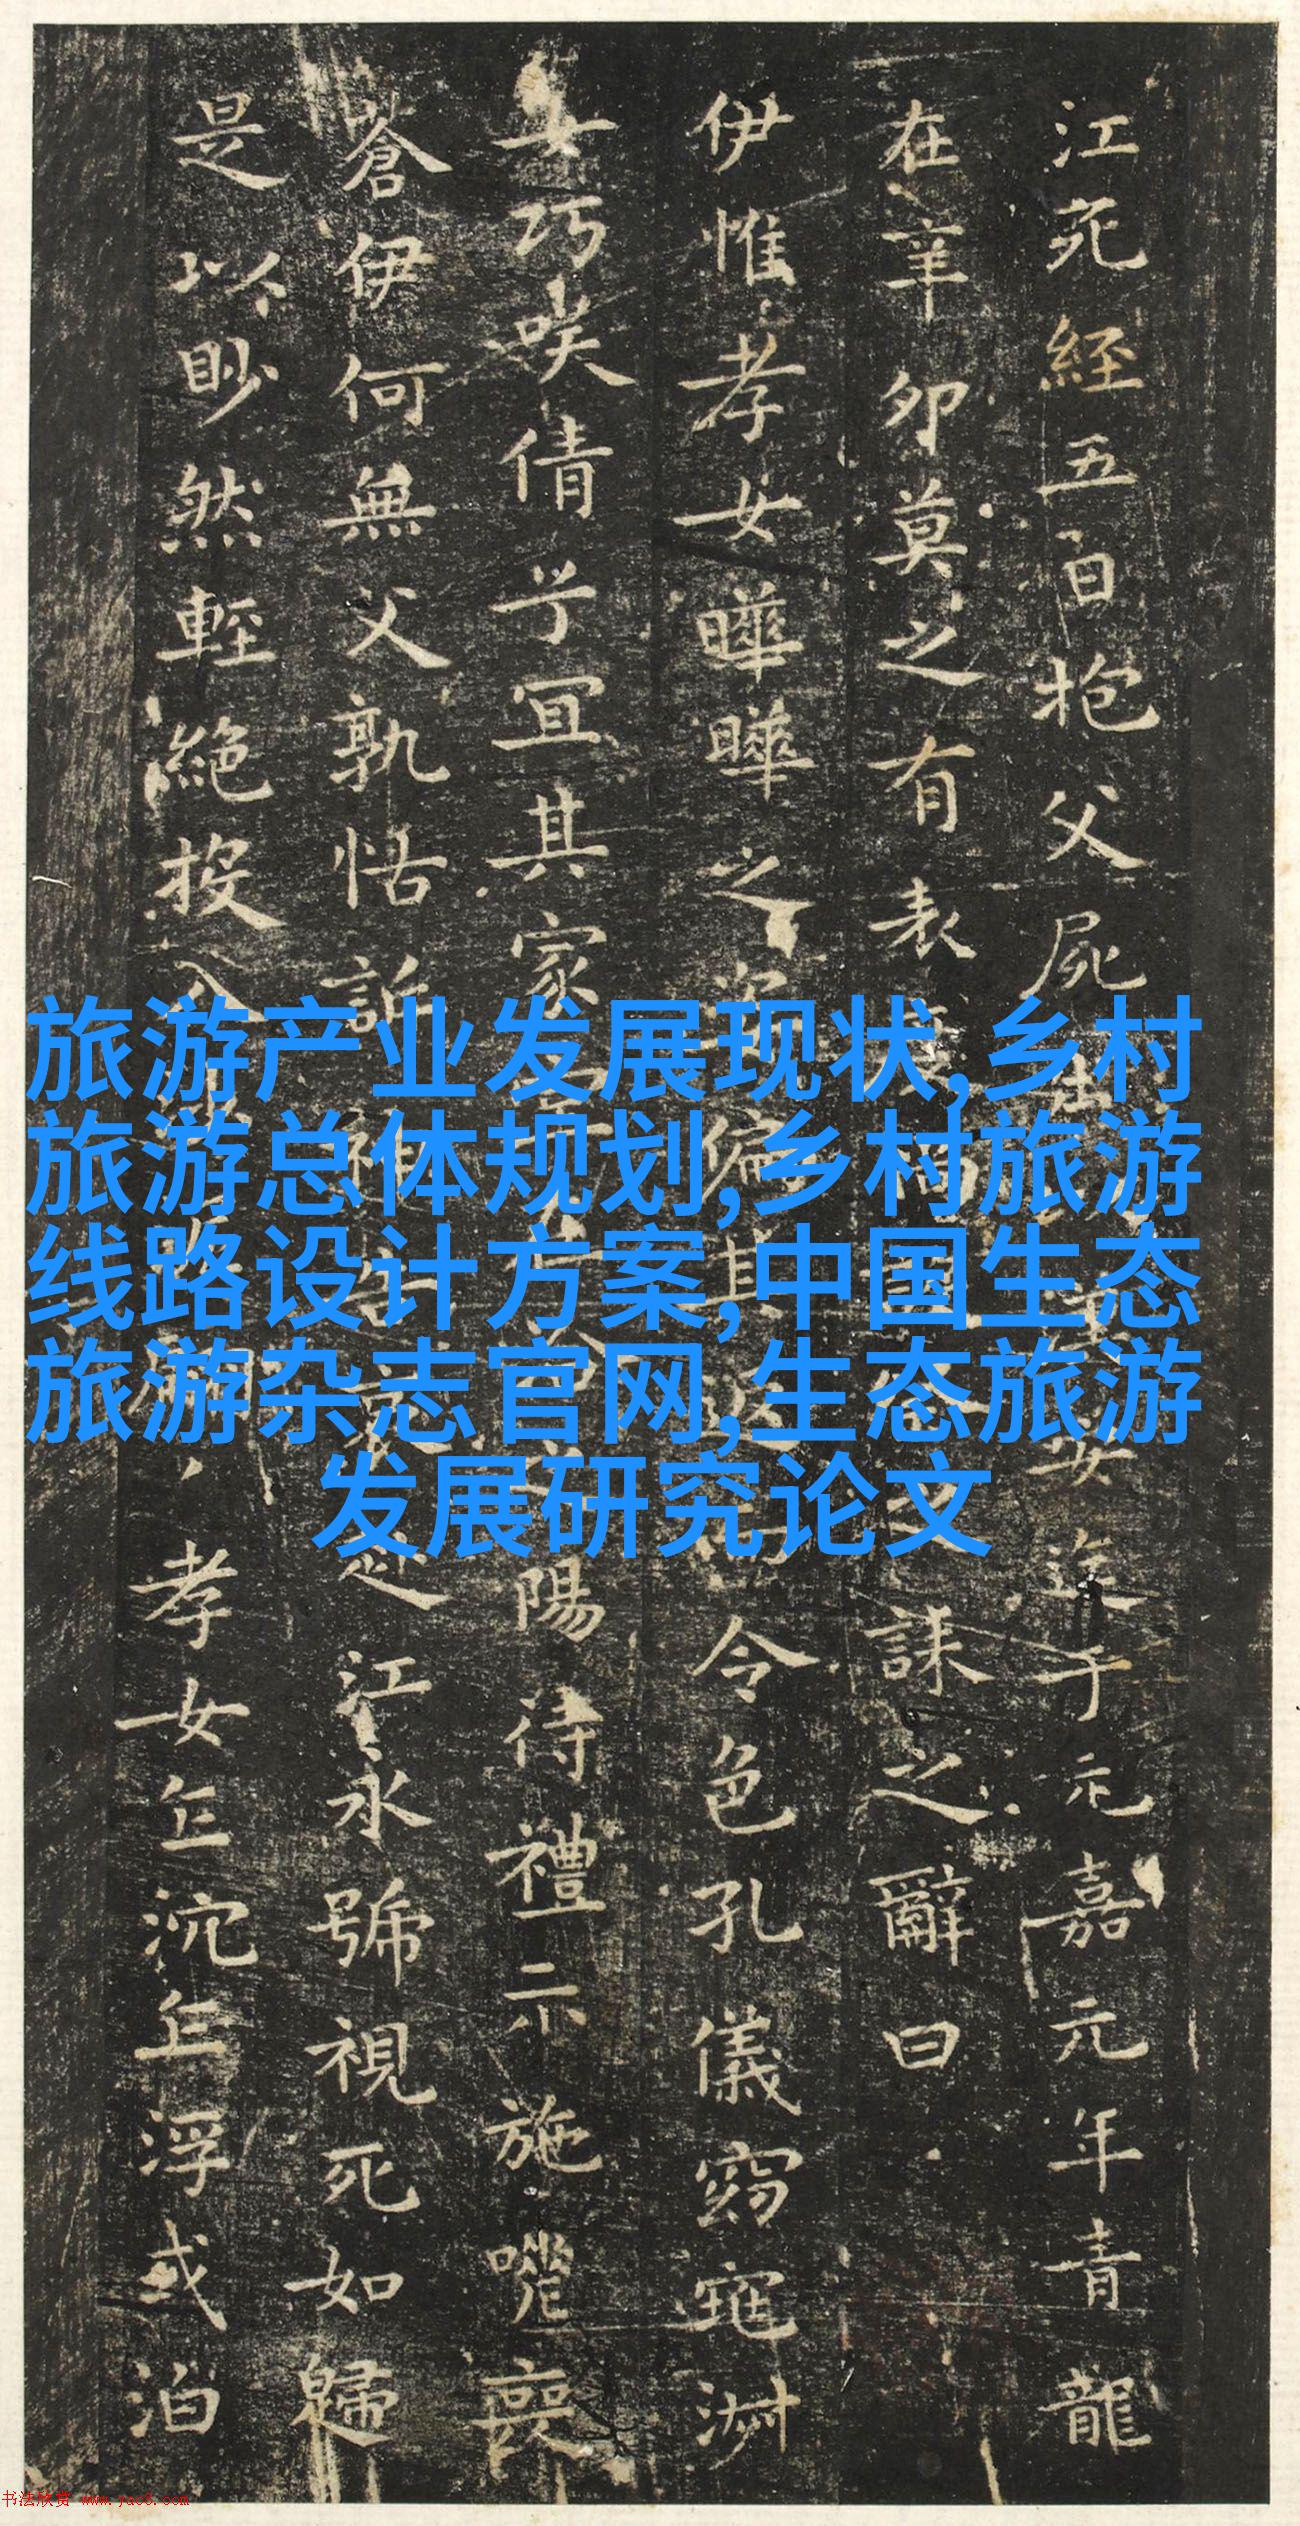 江死經五日抱父屍安迄于元嘉元年青龍
在辛卯莫之有表誄之辭曰
伊惟孝女曄曄之偏其令色孔儀窈窕淑
女巧咲倩兮宜其家陽待禮未施嗟喪
蒼伊何無父孰怙訴江永號視死如歸
是以眇然輕絕投入孝女乍沉乍浮或泊
旅游产业发展现状,乡村
旅游总体规划,乡村旅游
线路设计方案,中国生态
旅游杂志官网,生态旅游
发展研究论文
书法欣赏 www.yac8.com